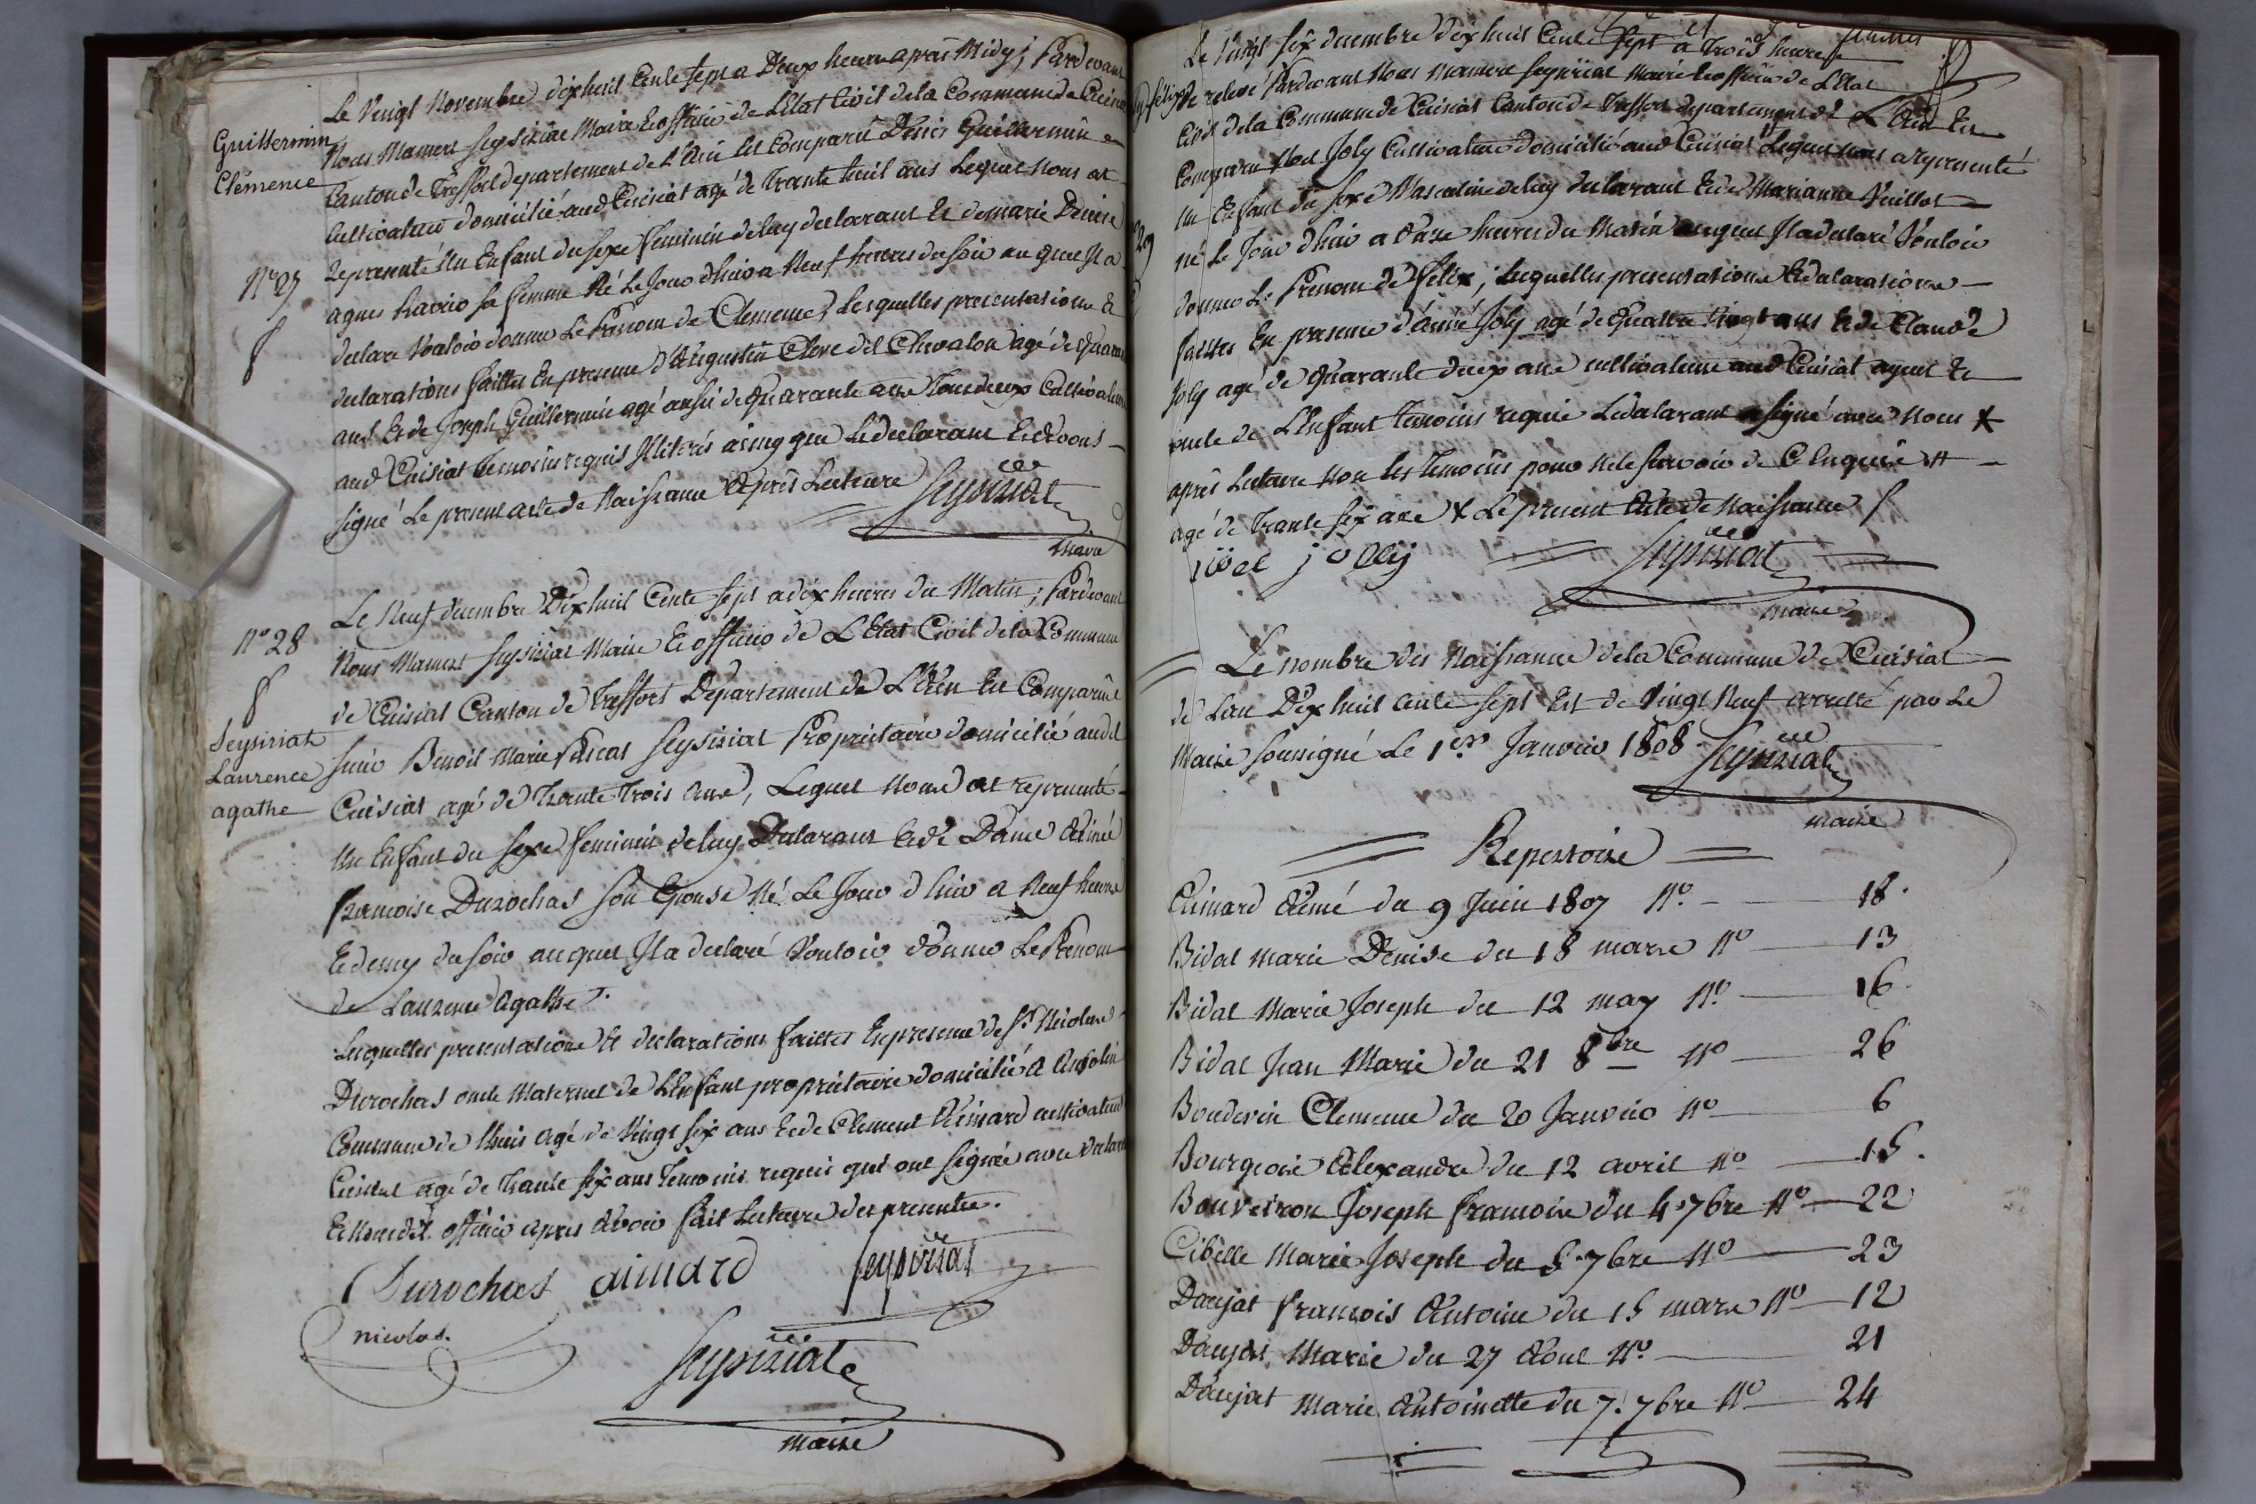 Guillermin
Clémence
N° 27
Le vingt Novembre dix huit Cents sept a Deux heures apres Midy; Pardevant
Nous Mamert Seysiriat Maire et officier de L'Etat Civil de la Commune de Cuisiat
Canton de Treffort departement de L'Ain Est Comparu Denis Guillermin
Cultivateur domicilié aud Cuisiat agé de Trante huit ans Lequel nous at
représenté un Enfant du sexe feminin de luy declarant Et de marie Denise
agnes sa femme Né Le Jour d'hier a Neuf heures du soir au quel Il a
declaré Vouloir donner Le Prénom de Clemence, Lesquelles presentations &
declarations faittes En presence d'Augustin Clerc dit Chevalon agé de Quarante
ans Et de Joseph Guillermin agé aussi de Quarante ans Tous deux Cultivateurs
aud Cuisiat Temoins requis Illiterés ainsy que Le declarant Et avons
signé Le present acte de Naissance Après Lecture Seysiriat
maire
N° 28
Seysiriat
Laurence
agathe
Le Neuf decembre Dix huit Cents sept a dix heures du Matin; Pardevant
Nous Mamert Seysiriat Maire Et officier de L'Etat Civil de la Commune
de Cuisiat Canton de Treffort Departement de L'Ain Est Comparu
sieur Benoit Marie Pascal Seysiriat Propriétaire domicilié aud
Cuisiat agé de Trante Trois ans, Lequel Nous at représenté
un Enfant du sexe feminin de luy Declarant Et de Dame Aimée
francoise Durochas son Epouse Né Le Jour d'hier a Neuf heures
Et demy du soir auquel Il a declaré Vouloir donner Le Prénom
de Laurence Agathe.
Lesquelles presentations Et declarations faittes En presence de Sr Nicolas
Durochas oncle Maternel de L'Enfant propriétaire domicilié a
Commune de agé de Vingt six ans Et de Clement Aimard cultivateur
Cuisiat agé de Trante six ans Temoins requis qui ont signé avec declarant
Et Nousdt officier apres Avoir fait Lecture des presentes.
Durochas aimard Seysiriat
nicolas.
Seysiriat
maire
Le Vingt six decembre dix huit Cents sept a Trois heures
de relevé Pardevant Nous Mamert Seysiriat Maire Et officier de L'Etat
Civil de la Commune de Cuisiat Canton de Treffort departement de L'Ain Est
Comparu Joly Cultivateur domicilié aud Cuisiat Lequel nous a representé
un Enfant du sexe Masculin de luy declarant Et de Marianne Vuillot
né Le Jour d'hier a onze heures du Matin auquel Il a declaré Vouloir
donner Le Prenom de Felix; Lesquelles presentations Et declarations
faittes En presence d'aimé Joly agé de Quatre Vingt ans Et de Claude
Joly agé de Quarante deux ans cultivateurs aud Cuisiat ayeul Et
oncle de L'Enfant Temoins requis Le declarant a signé avec Nous *
après Lecture non les Temoins pour ne le savoir de Cenquis
agé de Trante six ans * Le present Acte de Naissance
jolly Seysiriat
maire
Le nombre des Naissance de la Commune de Cuisiat
de L'an Dix huit Cents sept Est de Vingt Neuf arretté par Le
Maire soussigné Le 1er Janvier 1808 Seysiriat
maire
Repertoire
Aimard Aimé du 9 Juin 1807 N° 18.
Bidat Marie Denise du 18 mars N° 13
Bidat Marie Joseph du 12 may N° 16
Bidat Jean Marie du 21 8bre N° 26
Bouderin Clemence du 20 Janvier N° 6
Bourgeois Alexandre du 12 avril N° 15.
Bouveiron Joseph francois du 4 7bre N° 22
Cibelle Marie Joseph du 5 7bre N° 23
Daujat francois Antoine du 15 mars N° 12
Daujat Marie du 27 Aout N° 21
Daujat Marie Antoinette du 7. 7bre N° 24